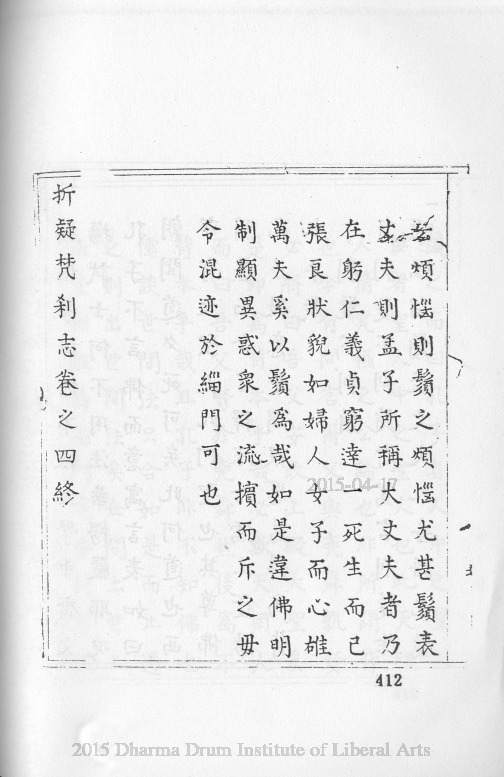 若煩惱則鬚之煩惱尤甚鬚表
丈夫則孟子所稱大丈夫者乃
在躬仁義貞窮達一死生而已
張良狀貌如婦人女子而心雄
萬夫奚以鬚爲哉如是違佛明
制顯異惑衆之流擯而斥之毋
令混迹於緇門可也
折疑梵刹志卷之四終
412
2015-04-17
2015 Dharma Drum Institute of Liberal Arts